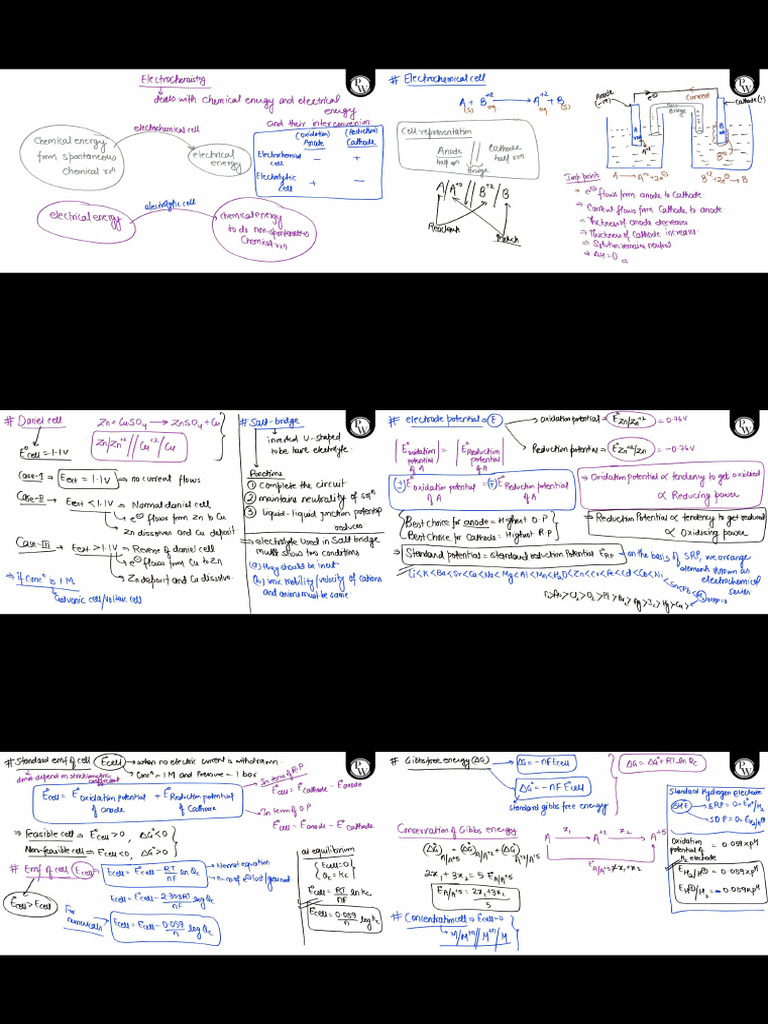 Electrochemistry
↳ deals with chemical energy and electrical energy
and their interconversion
Chemical energy
from spontaneous
chemical rxn
electrochemical cell
electrical
energy
(Oxidation) Anode
(Reduction) Cathode
Electrochemical cell - +
Electrolytic cell + -
electrical energy
electrolytic cell
chemical energy
to do non-spontaneous
Chemical rxn
PW
# Electrochemical cell
A(s) + B+2 aq → A+2 aq + B(s)
Cell representation
Anode half rxn || Cathode half rxn
Bridge
A/A+2 // B+2/B
Reactants
Product
Anode (-ve)
e⊖
Current
Cathode (+)
Bridge
A rod
B rod
A+2
B+2
A → A+2 + 2e⊖
B+2 + 2e⊖ → B
Imp points
→ e⊖ flows from anode to Cathode
→ Current flows from Cathode to anode
→ Thickness of anode decreases
→ Thickness of Cathode increases
→ Solution remains neutral
PW
# Daniel cell
Zn + CuSO4 → ZnSO4 + Cu
Zn/Zn+2 // Cu+2/Cu
E°cell = 1.1V
Case-I → Eext = 1.1V ⇒ no current flows
Case-II → Eext < 1.1V ⇒ Normal daniel cell
↳ e⊖ flows from Zn to Cu
Zn dissolves and Cu deposit
Case-III → Eext > 1.1V → Reverse of daniel cell
↳ e⊖ flows from Cu to Zn
↳ Zn deposit and Cu dissolve.
⇒ if Concn is 1M
Galvanic cell/Voltaic cell
# Salt-bridge
inverted U-shaped
tube have electrolyte.
Functions
① Complete the circuit
② maintains neutrality of soln
③ liquid-liquid junction potential
reduces
⇒ electrolyte used in Salt bridge
must show two conditions
(a) they should be inert
(b) ionic mobility/velocity of cations
and anions must be same
PW
# electrode potential ⇒ E
oxidation potential = E°Zn/Zn+2 = 0.76V
Reduction potential = E°Zn+2/Zn = -0.76V
|E°oxidation potential of A| = |E°Reduction potential of A|
(+) E°oxidation potential of A = (-) E°Reduction potential of A
⇒ Oxidation potential ∝ tendency to get oxidised
∝ Reducing power
Best choice for anode = Highest O.P
Best choice for Cathode = Highest R.P
⇒ Reduction Potential ∝ tendency to get reduced
∝ Oxidising power
⇒ Standard potential = standard reduction Potential E°R.P
on the basis of SRP, we arrange
elements known as
electrochemical
series
Li<K<Ba<Sr<Ca<Na<Mg<Al<Mn<H2O<Zn<Cr<Fe<Cd<Co<Ni
PW
# Standard emf of cell E°cell → when no electric current is withdrawn.
does not depend on stoichiometric coefficient
Concn = 1M and Pressure = 1 bar
E°cell = E°Oxidation potential of anode + E°Reduction potential of Cathode
In term of R.P
E°cell = E°cathode - E°anode
In term of O.P
E°cell = E°anode - E°cathode
⇒ Feasible cell ⇒ E°cell > 0, ΔG° < 0
Non-feasible cell ⇒ E°cell < 0, ΔG° > 0
# Emf of cell Ecell
Ecell = E°cell - RT/nF ln Qc
Nernst equation
n - no of e⊖ lost/gained
Ecell = E°cell - 2.303RT/nF log Qc
E°cell > Ecell
For numericals
Ecell = E°cell - 0.059/n log Qc
at equilibrium
Ecell = 0
Qc = Kc
E°cell = RT/nF ln Kc
E°cell = 0.059/n log Kc
PW
# Gibbs free energy (ΔG)
ΔG = -nFEcell
ΔG° = -nFE°cell
standard gibbs free energy
ΔG = ΔG° + RT ln Qc
Conservation of Gibbs energy
A x1 → A+2 x2 → A+5
2x1 + 3x2 = 5E°A/A+5
E°A/A+5 = 2x1+3x2/5
E°A/A+5 ≠ x1+x2
# Concentration cell ⇒ E°cell = 0
M/M+n // M+n/M
Standard Hydrogen electrode
SHE
SRP = 0 = E°H+/H2
SOP = 0 = E°H2/H+
Oxidation
potential of
H2 electrode = 0.059xpH
EH2/H⊕ = 0.059xpH
EH⊕/H2 = -0.059xpH
PW